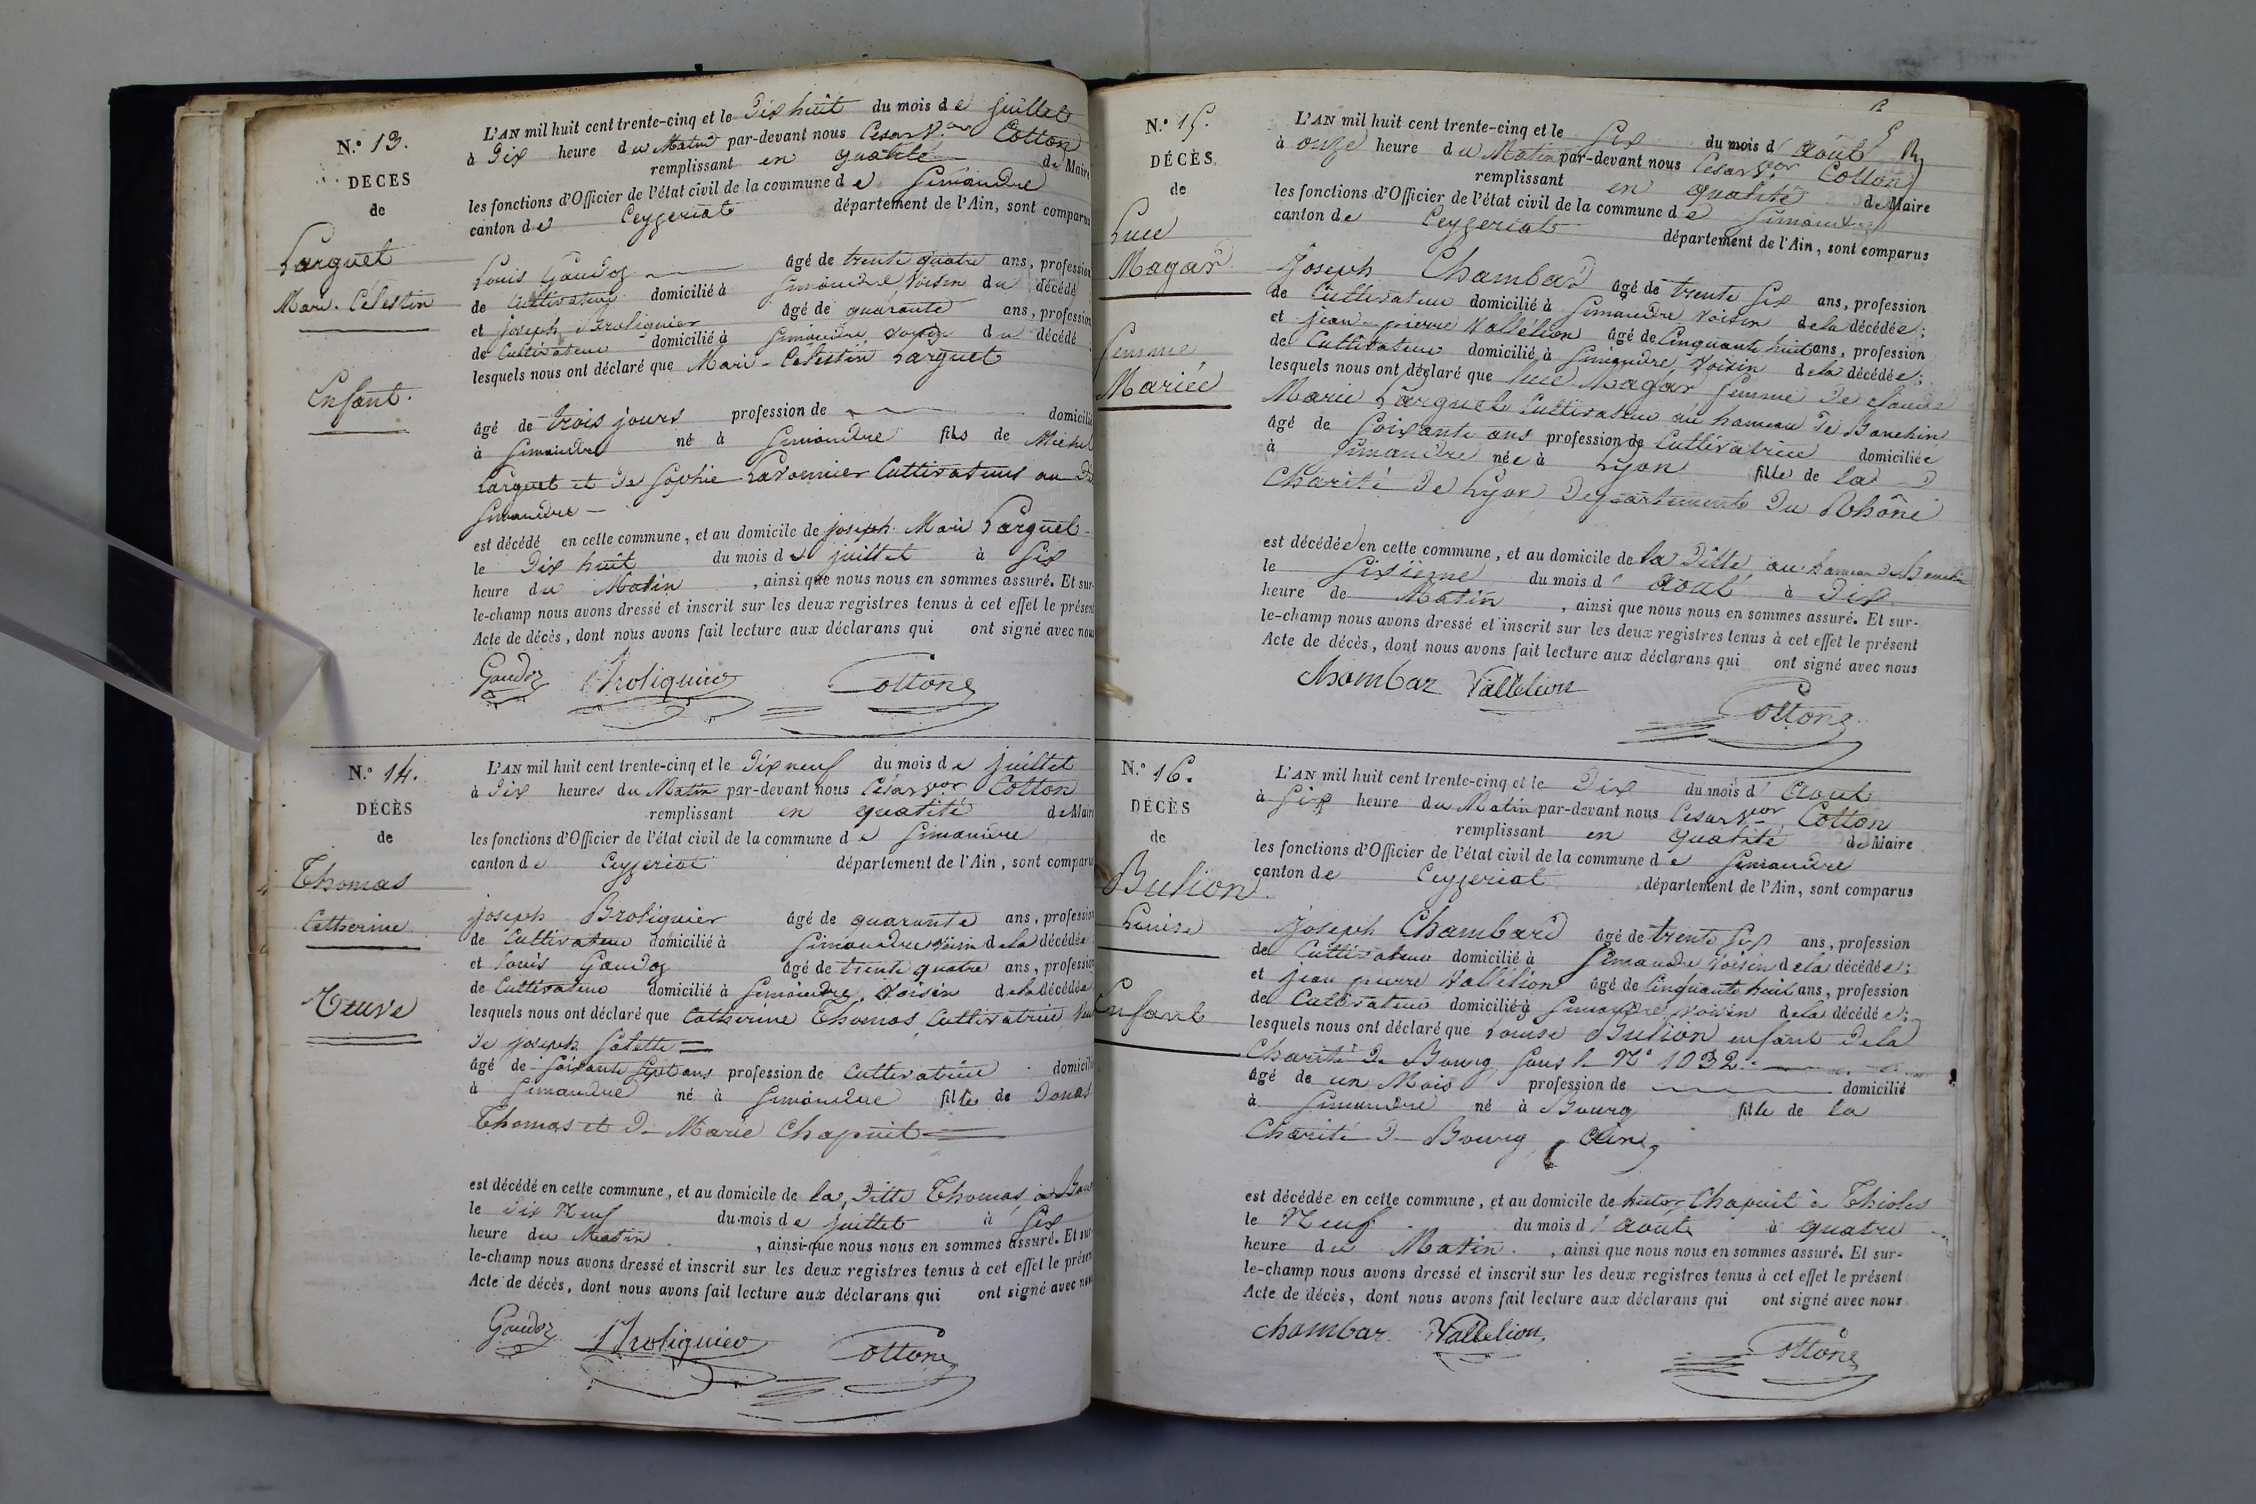 N.° 13.
DÉCÈS
de
Larguet
Mari. Celestin
Enfant.
L'AN mil huit cent trente-cinq et le Dix huit du mois de juillet
à Dix heure du Matin par-devant nous Cesar V.or Cotton
remplissant en qualité de Maire
les fonctions d'Officier de l'état civil de la commune de Simandre
canton de Ceyzeriat département de l'Ain, sont comparus
Louis Gaudoz âgé de trente quatre ans, profession
de Cultivateur domicilié à Simandre Voisin du décédé
et joseph Brotiquier âgé de quarante ans, profession
de Cultivateur domicilié à Simandre voisin du décédé
lesquels nous ont déclaré que Mari-Celestin Larguet
âgé de trois jours profession de domicilié
à Simandre né à Simandre fils de Michel
Larguet et de Sophie Lavornier Cultivateurs au Dit
Simandre
est décédé en cette commune, et au domicile de joseph Mari Larguet
le Dix huit du mois de juillet à Six
heure du Matin, ainsi que nous nous en sommes assuré. Et sur-
le-champ nous avons dressé et inscrit sur les deux registres tenus à cet effet le présent
Acte de décès, dont nous avons fait lecture aux déclarans qui ont signé avec nous
Gaudoz Brotiquier Cotton
N.° 14.
DÉCÈS
de
Thomas
Catherine
Veuve
L'AN mil huit cent trente-cinq et le Dix neuf du mois de juillet
à Dix heures du Matin par-devant nous César V.or Cotton
remplissant en qualité de Maire
les fonctions d'Officier de l'état civil de la commune de Simandre
canton de Ceyzeriat département de l'Ain, sont comparus
joseph Brotiquier âgé de quarante ans, profession
de Cultivateur domicilié à Simandre voisin de la décédée
et Louis Gaudoz âgé de trente quatre ans, profession
de Cultivateur domicilié à Simandre Voisin de la décédée
lesquels nous ont déclaré que Catherine Thomas Cultivatrice Veuve
De joseph
âgé de Soixante Sept ans profession de Cultivatrice domicilié
à Simandre né à Simandre fille de Donas
Thomas et De Marie Chapuit
est décédé en cette commune, et au domicile de la Ditte Thomas
le Dix Neuf du mois de juillet à Six
heure du Matin, ainsi que nous nous en sommes assuré. Et sur-
le-champ nous avons dressé et inscrit sur les deux registres tenus à cet effet le présent
Acte de décès, dont nous avons fait lecture aux déclarans qui ont signé avec nous
Gaudoz Brotiquier Cotton
N.° 15.
DÉCÈS
de
Luce
Magar
femme
Mariée
L'AN mil huit cent trente-cinq et le Six du mois d'Août
à onze heure du Matin par-devant nous Cesar V.or Cotton
remplissant en qualité de Maire
les fonctions d'Officier de l'état civil de la commune de Simandre
canton de Ceyzeriat département de l'Ain, sont comparus
Joseph Chambard âgé de trente Six ans, profession
de Cultivateur domicilié à Simandre Voisin de la décédée;
et jean-pierre Vallélion âgé de Cinquante huit ans, profession
de Cultivateur domicilié à Simandre Voisin de la décédée;
lesquels nous ont déclaré que luce Magar femme De claude
Marie Larguet Cultivateur au hameau De Banchin
âgé de Soixante ans profession de Cultivatrice domiciliée
à Simandre née à Lyon fille de la
Charité De Lyon Departemente Du Rhône
est décédée en cette commune, et au domicile de la Ditte au hameau De Banchin
le Sixieme du mois d'Aout à Dix
heure de Matin, ainsi que nous nous en sommes assuré. Et sur-
le-champ nous avons dressé et inscrit sur les deux registres tenus à cet effet le présent
Acte de décès, dont nous avons fait lecture aux déclarans qui ont signé avec nous
Chambar Vallelion
Cotton
N.° 16.
DÉCÈS
de
Bulion
Louise
Enfant
L'AN mil huit cent trente-cinq et le Dix du mois d'Août
à Six heure du Matin par-devant nous Cesar V.or Cotton
remplissant en qualité de Maire
les fonctions d'Officier de l'état civil de la commune de Simandre
canton de Ceyzeriat département de l'Ain, sont comparus
joseph Chambard âgé de trente Six ans, profession
de Cultivateur domicilié à Simandre Voisin de la décédée;
et jean pierre Vallélion âgé de Cinquante huit ans, profession
de Cultivateur domicilié à Simandre Voisin de la décédée;
lesquels nous ont déclaré que Louise Bulion enfant De la
Charité De Bourg Sous le N° 1032
âgé de un Mois profession de domicilié
à Simandre né à Bourg fille de la
Charité De Bourg Ain
est décédée en cette commune, et au domicile de Chapuit à Thioles
le Neuf du mois d'Août à quatre
heure du Matin, ainsi que nous nous en sommes assuré. Et sur-
le-champ nous avons dressé et inscrit sur les deux registres tenus à cet effet le présent
Acte de décès, dont nous avons fait lecture aux déclarans qui ont signé avec nous
Chambar Vallelion
Cotton